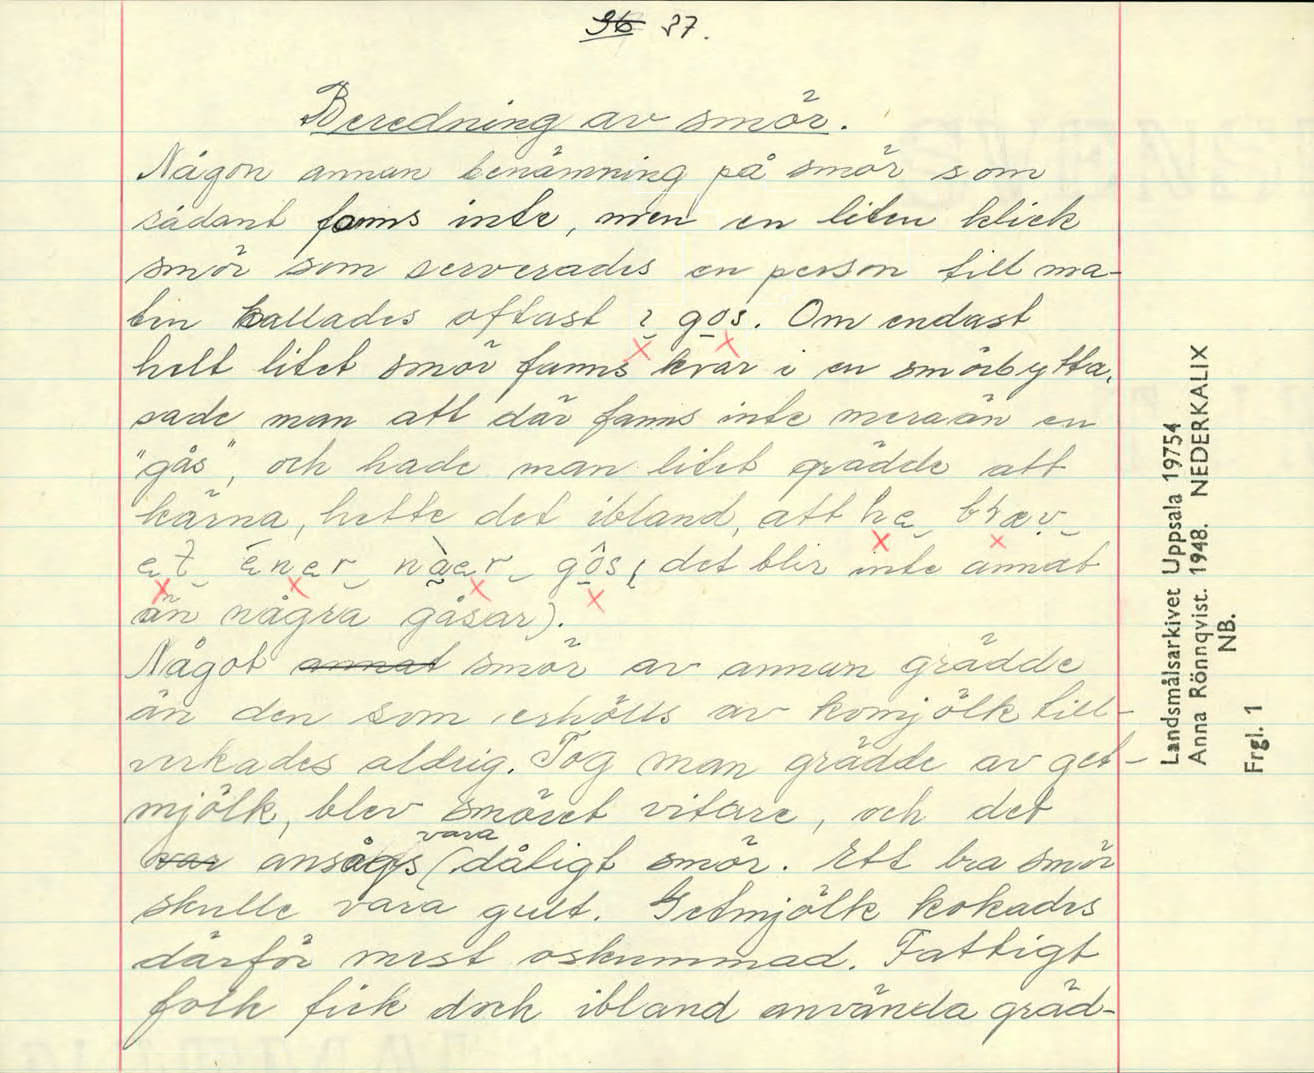 36 37.
Beredning av smör.
Någon annan benämning på smör som
sådant fanns inte, men en liten klick
smör som serverades en person till ma-
ten kallades oftast ɿ gos. Om endast
helt litet smör fanns kvar i en smörbytta,
sade man att där fanns inte mera än en
"gås", och hade man litet grädde att
kärna, hette det ibland, att
gôs (det blir inte annat
än några gåsar).
Något annat smör av annan grädde
än den som erhölls av komjölk till-
verkades aldrig. Tog man grädde av get-
mjölk, blev smöret vitare, och det
var ansågs vara dåligt smör. Ett bra smör
skulle vara gult. Getmjölk kokades
därför mest oskummad. Fattigt
folk fick dock ibland använda gräd-
Landsmålsarkivet Uppsala 19754
Anna Rönnqvist. 1948. NEDERKALIX
NB.
Frgl. 1